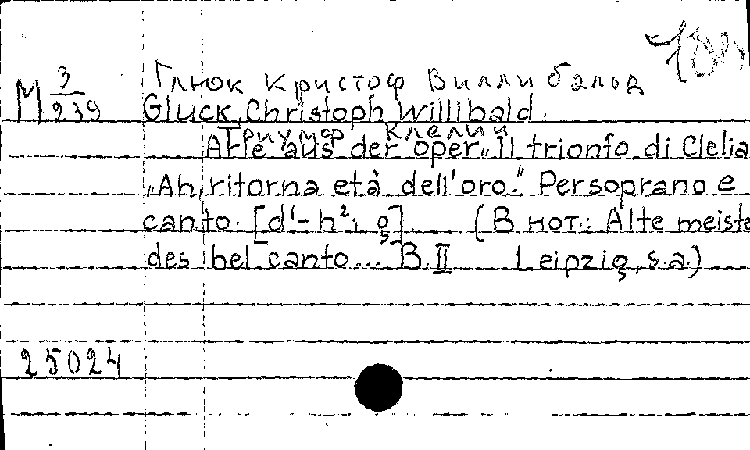 М 3/239 Глюк Кристоф Виллибальд
Gluck, Christoph Willibald.
Триумф Клелии
Arie aus der oper „Il trionfo di Clelia
„Ah, ritorna età dell'oro." Per soprano e
canto. [d¹-h²; g] (В нот.: Alte meiste
des bel canto... B. II Leipzig, s.a.)
25024